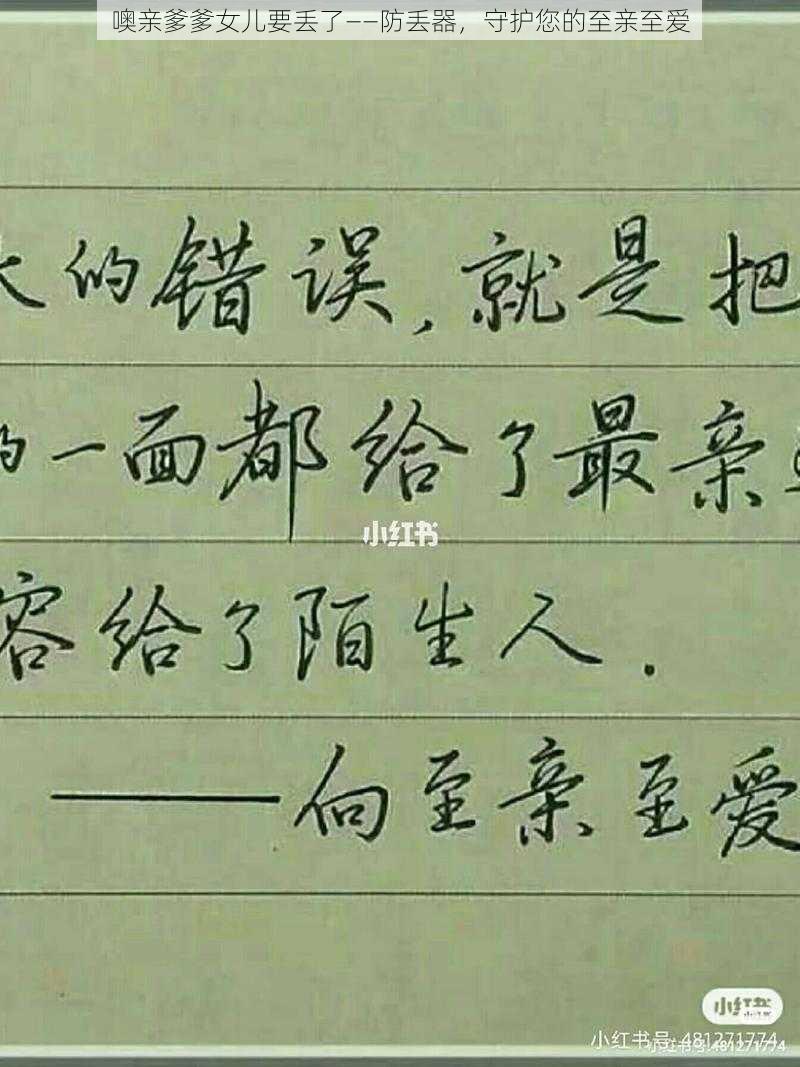 噢亲爹爹女儿要丢了——防丢器，守护您的至亲至爱
大的错误，就是把
的一面都给了最亲
小红书
容给了陌生人．
——向至亲至爱
小红书
小红书号:481271774
小红书号:481271774